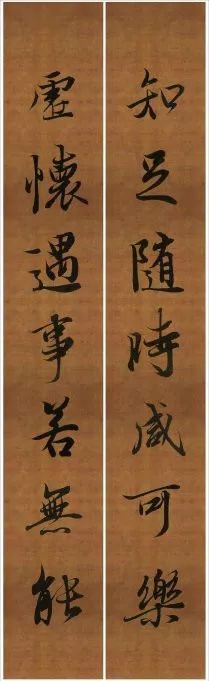 知足随時咸可樂
虛懷遇事若無能